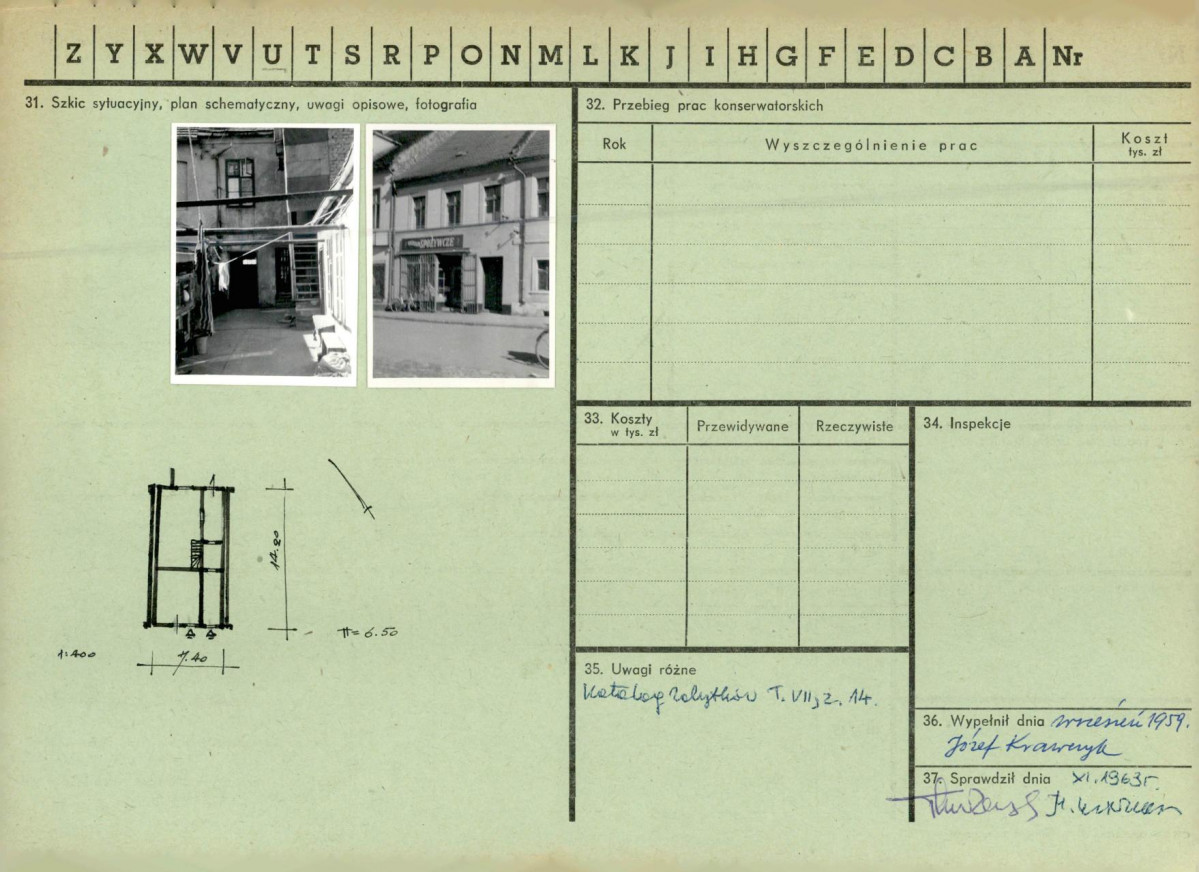 Z Y X W V U T S R P O N M L K J I H G F E D C B A Nr
31. Szkic sytuacyjny, plan schematyczny, uwagi opisowe, fotografia
SPOŻYWCZE
14.20
H = 6.50
1:400
7.40
32. Przebieg prac konserwatorskich
Rok
Wyszczególnienie prac
Koszt
tys. zł
33. Koszty
w tys. zł
Przewidywane
Rzeczywiste
34. Inspekcje
35. Uwagi różne
Katalog zabytków T. VII, z. 14.
36. Wypełnił dnia wrzesień 1959.
Józef Krawczyk
37. Sprawdził dnia XI. 1963 r.